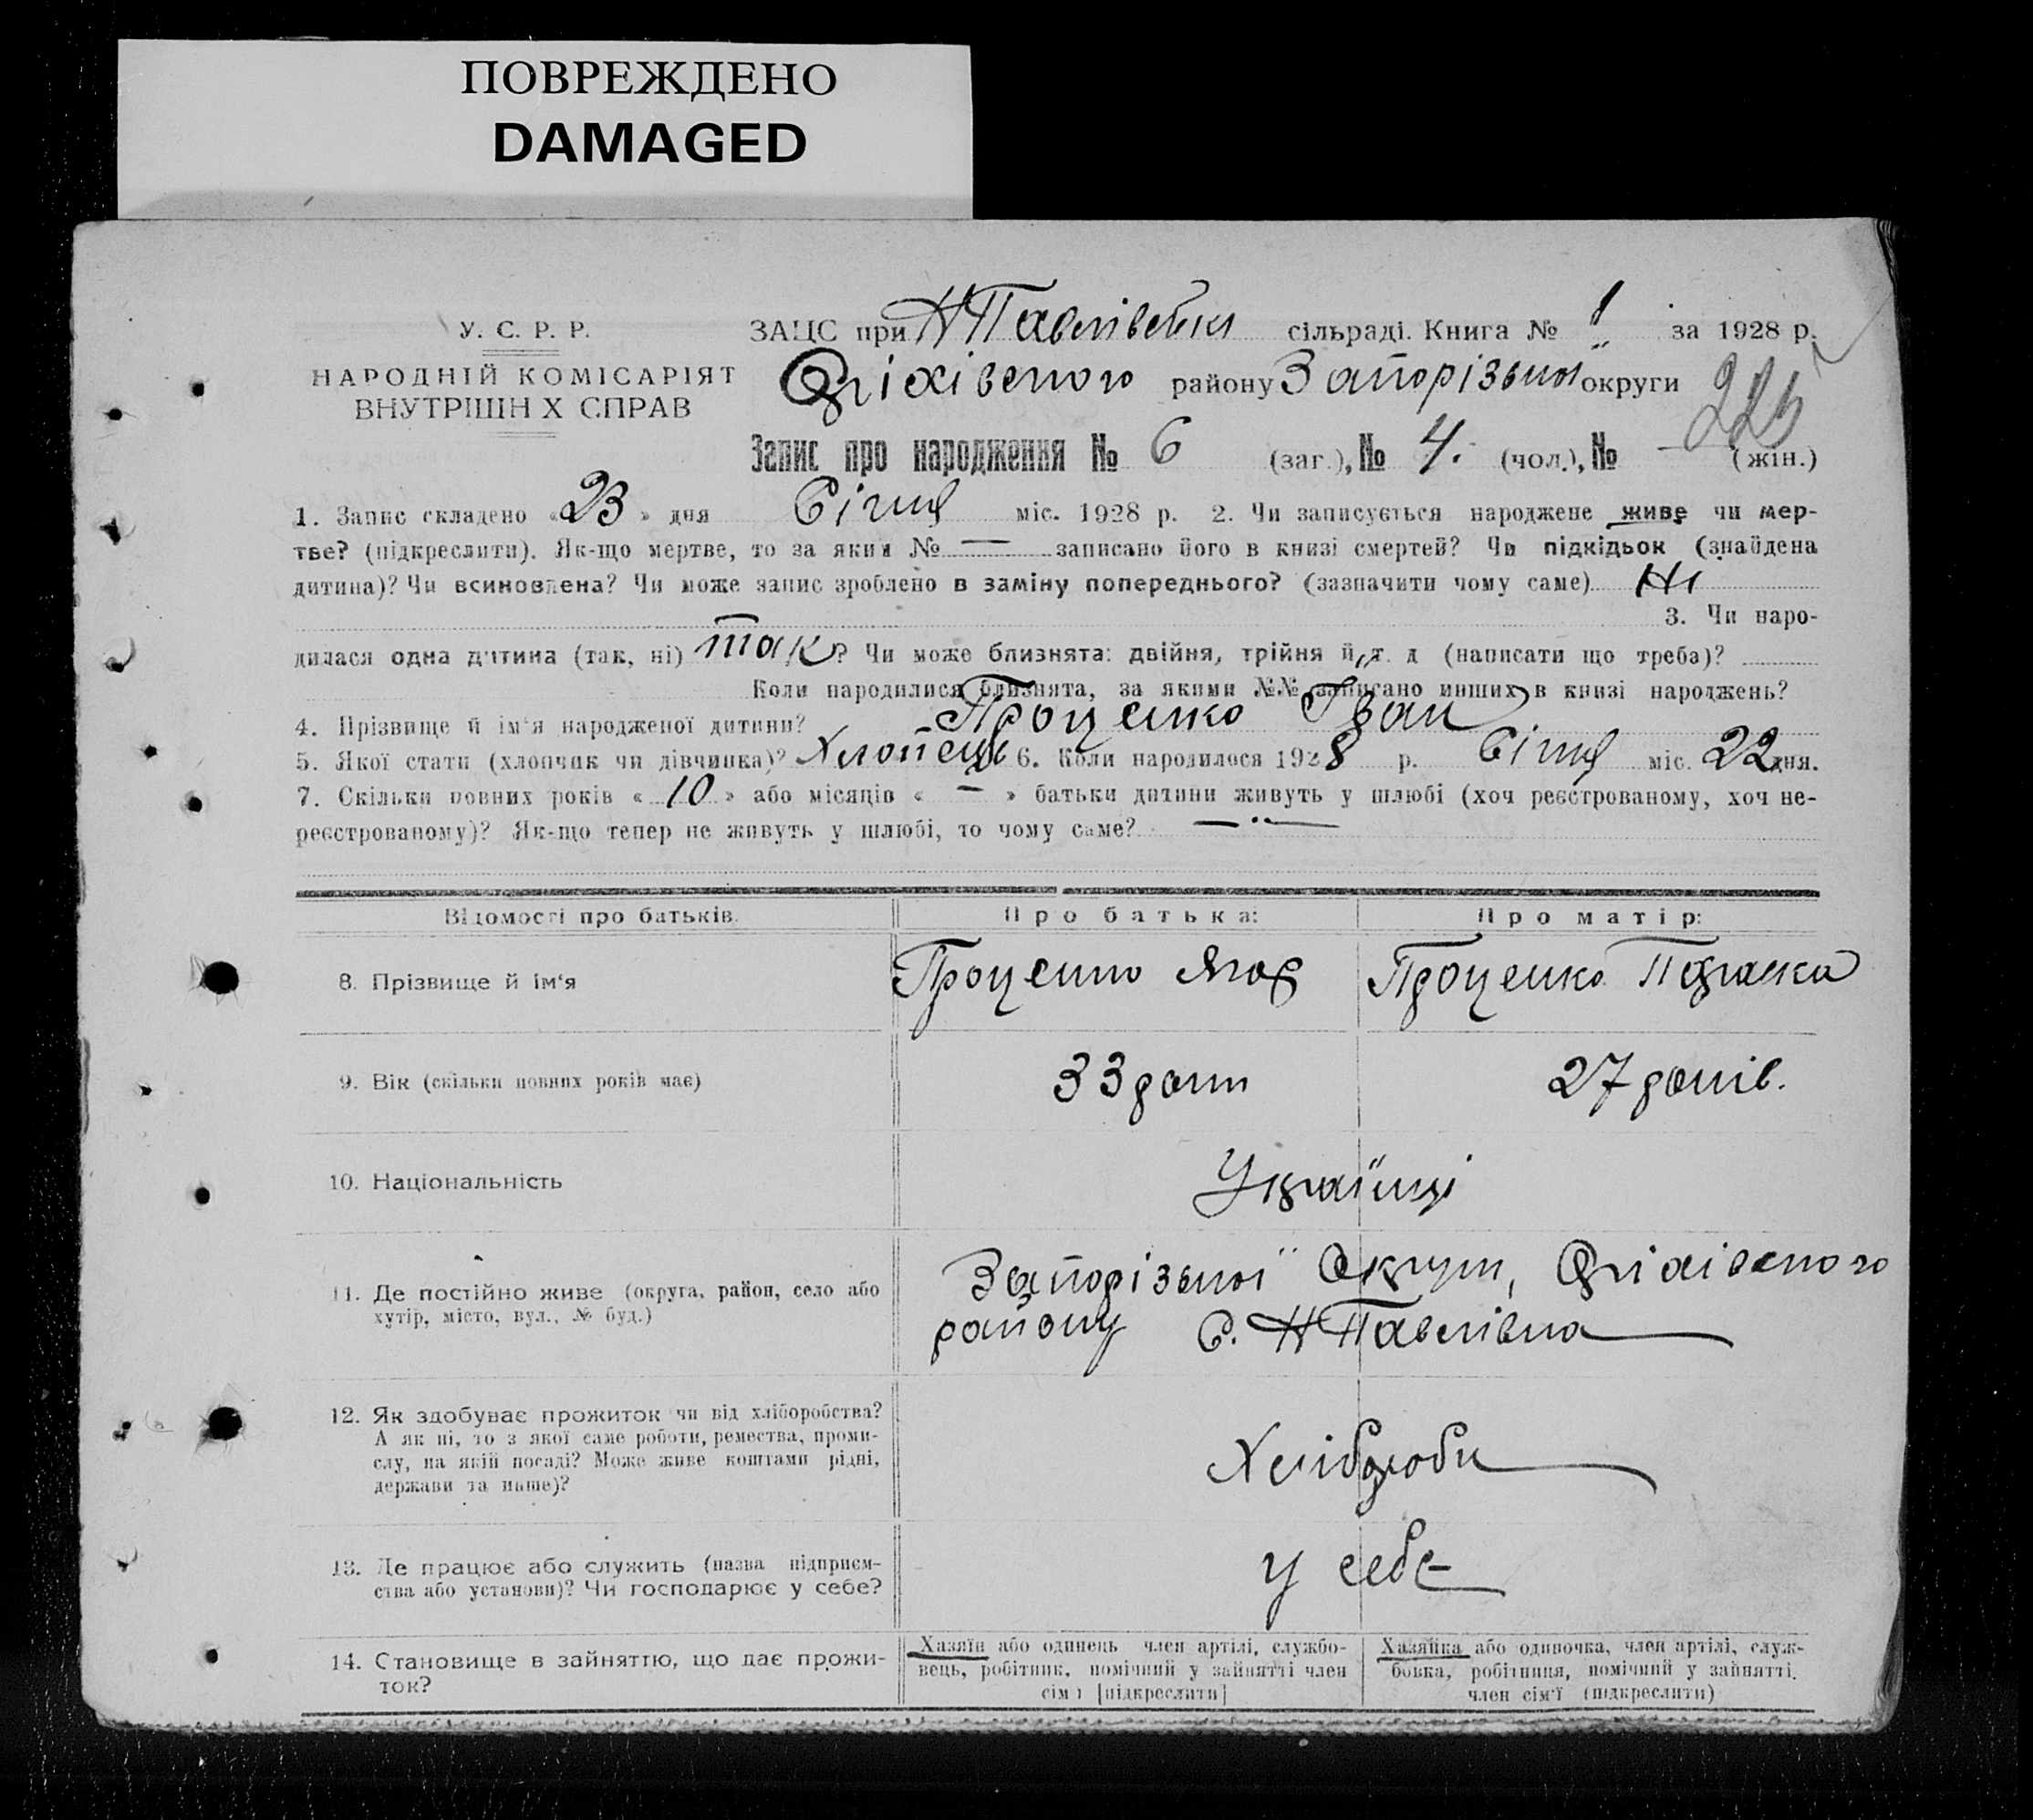 ПОВРЕЖДЕНО
DAMAGED
У. С. Р. Р.
НАРОДНІЙ КОМІСАРІЯТ
ВНУТРІШН Х СПРАВ
ЗАЦС при Н Павлівській сільраді. Книга № 1 за 1928 р.
Оріхівського району Запорізької округи
225
Запис про народження № 6 (заг.), № 4. (чол.), № — (жін.)
1. Запис складено «23» дня Січня міс. 1928 р. 2. Чи записується народжене живе чи мер-
тве? (підкреслити). Як-що мертве, то за яким № — записано його в книзі смертей? Чи підкідьок (знайдена
дитина)? Чи всиновлена? Чи може запис зроблено в заміну попереднього? (зазначити чому саме) Ні
3. Чи наро-
дилася одна дитина (так, ні) так? Чи може близнята: двійня, трійня й т. д (написати що треба)?
Коли народилися близнята, за якими №№ записано инших в книзі народжень?
4. Прізвище й ім'я народженої дитини? Проценко Іван
5. Якої стати (хлопчик чи дівчинка)? Хлопець 6. Коли народилося 1928 р. Січня міс. 22 дня.
7. Скільки повних років «10» або місяців « — » батьки дитини живуть у шлюбі (хоч реєстрованому, хоч не-
реєстрованому)? Як-що тепер не живуть у шлюбі, то чому саме? —
Відомості про батьків. Про батька: Про матір:
8. Прізвище й ім'я Проценко Проценко
9. Вік (скільки повних років має) 33 роки 27 років.
10. Національність Українці
11. Де постійно живе (округа, район, село або
хутір, місто, вул., № буд.)
Запорізької Округи, Оріхівського
району С. Н Павлівка
12. Як здобуває прожиток чи від хліборобства?
А як ні, то з якої саме роботи, ремества, проми-
слу, на якій посаді? Може живе коштами рідні,
держави та инше)?
Хлібороби
13. Де працює або служить (назва підприєм-
ства або установи)? Чи господарює у себе?
у себе
14. Становище в зайняттю, що дає прожи-
ток?
Хазяїн або одинець член артілі, службо-
вець, робітник, помічний у зайнятті член
сім ї [підкреслити]
Хазяйка або одиночка, член артілі, служ-
бовка, робітниця, помічний у зайнятті.
член сім'ї (підкреслити)